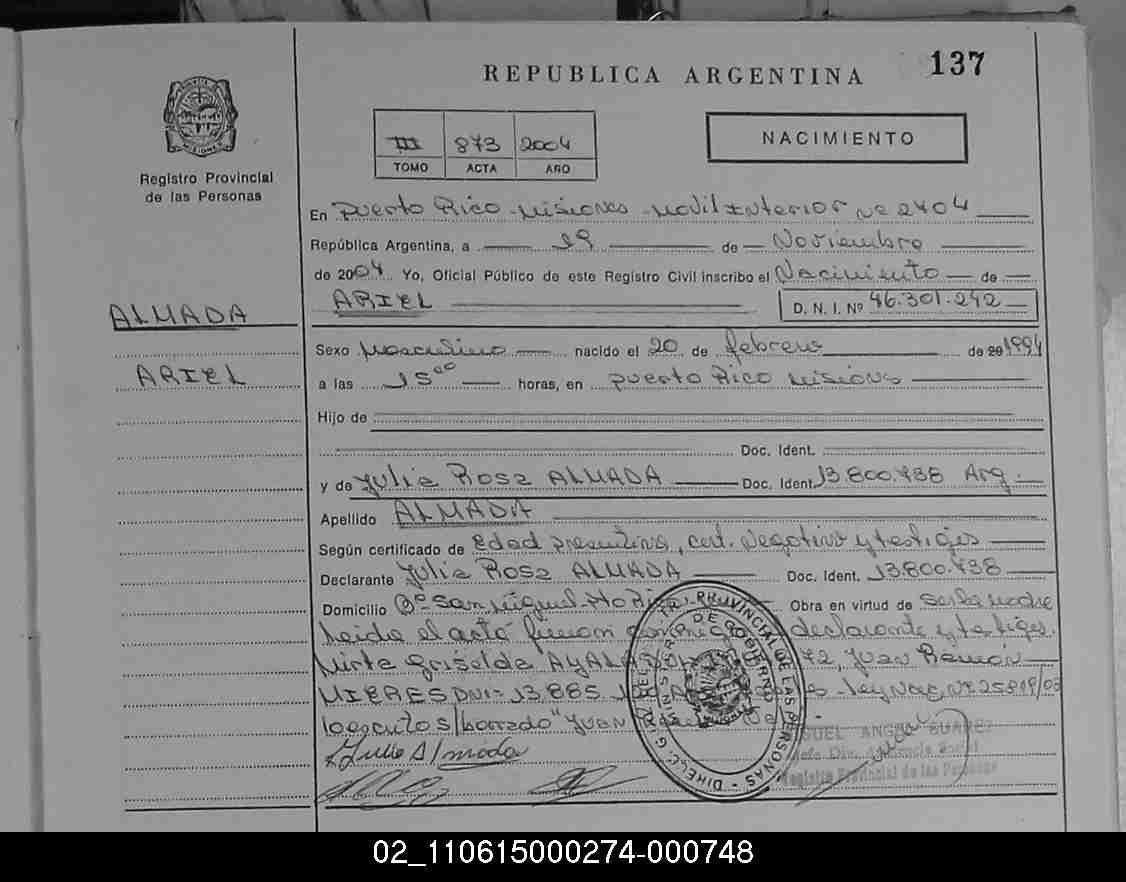 137
REPUBLICA ARGENTINA
III 873 2004
TOMO ACTA AÑO
NACIMIENTO
Registro Provincial
de las Personas
En Puerto Rico - Misiones - Movil Interior Nº 2404
República Argentina, a 19 de Noviembre
de 2004 Yo, Oficial Público de este Registro Civil inscribo el Nacimiento de
ARIEL D. N. I. Nº 46.301.242
ALMADA
ARIEL
Sexo Masculino nacido el 20 de febrero de 20 1994
a las 15 00 horas, en Puerto Rico Misiones
Hijo de
Doc. Ident.
y de Julia Rosa ALMADA Doc. Ident. 13.800.738 Arg
Apellido ALMADA
Según certificado de edad presuntiva, cert. negativo y testigos
Declarante Julia Rosa ALMADA Doc. Ident. 13.800.738
Domicilio Bº San Miguel - Pto Rico Obra en virtud de ser la madre
Leida el acta firman declarante y testigos.
Mirta Griselda AYALA 72, Juan Ramón
MIERES DNI = 13.885. Ley Nac. Nº 25819/03
s/borrado "Juan
Julia Almada
REG. PROVINCIAL DE LAS PERSONAS
MINISTERIO DE GOBIERNO
MIGUEL ANGEL SUAREZ
Jefe Div. Asistencia Social
Registro Provincial de las Personas
02_110615000274-000748